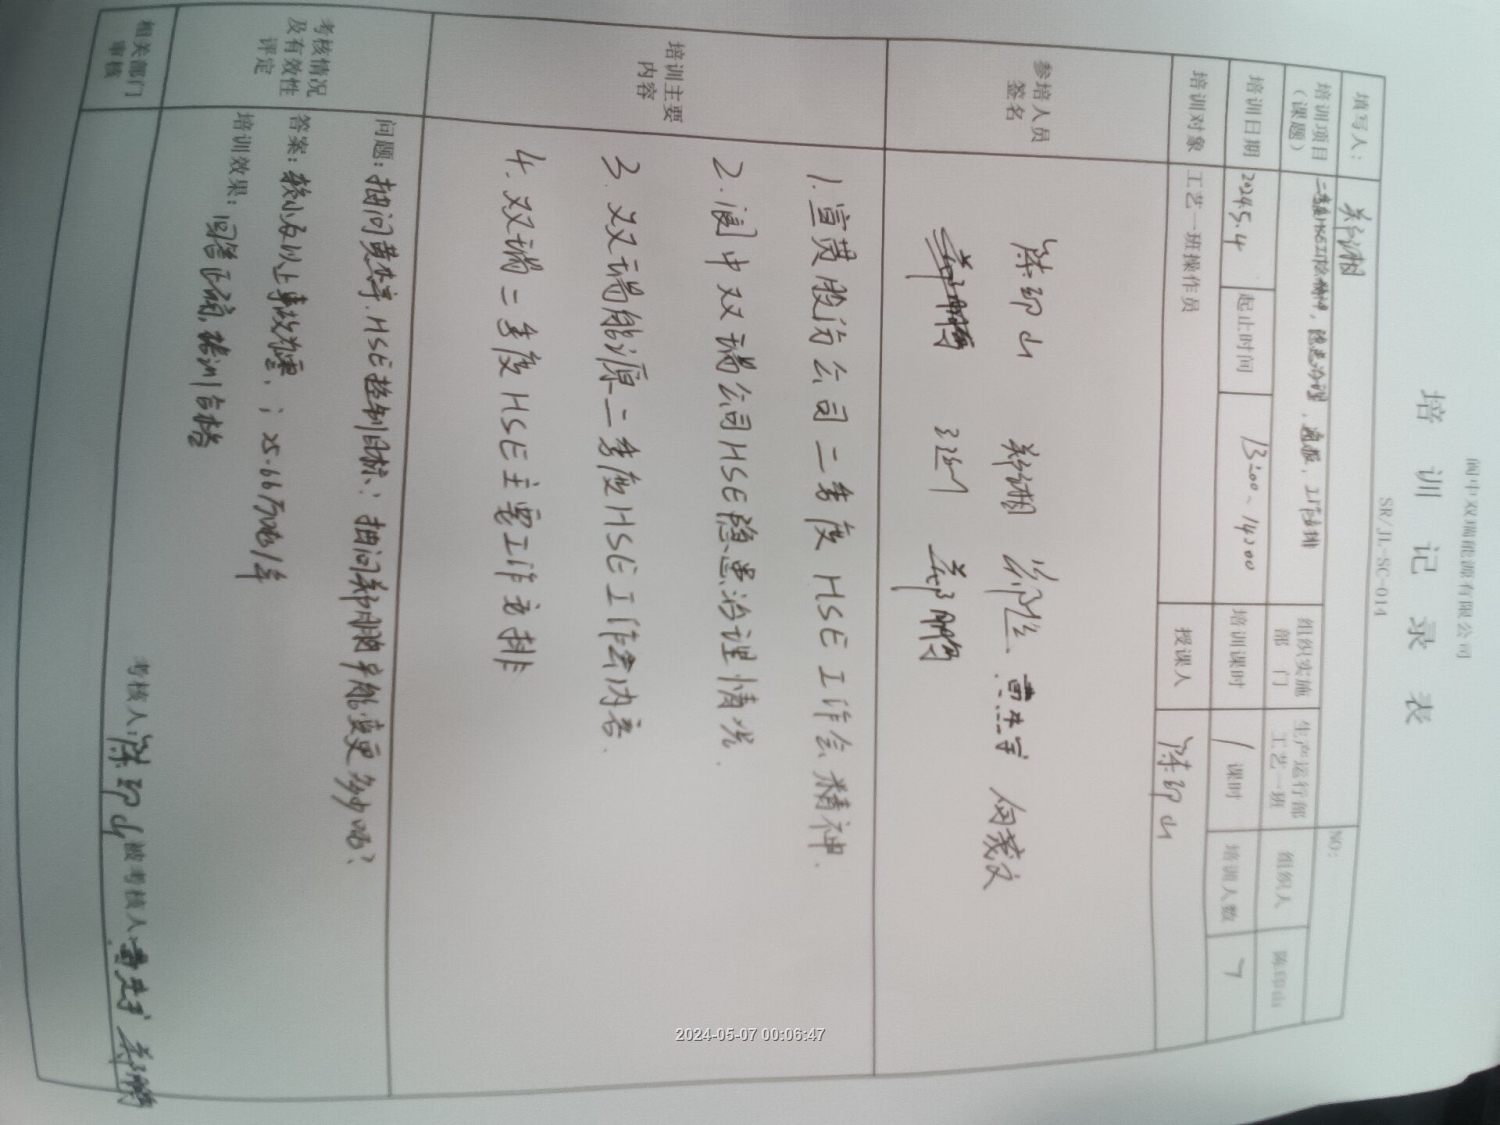 阆中双瑞能源有限公司
培训记录表
SR/JL-SC-014
填写人： NO:
培训项目（课题） 二季度HSE工作会精神，隐患治理，通报，工作安排 组织实施部门 生产运行部工艺一班 组织人 陈印山
培训日期 2024.5.4 起止时间 13:00~14:00 培训课时 1课时 培训人数 7
培训对象 工艺一班操作员 授课人 陈印山
参培人员签名 陈印山 郑湘 向茂文
培训主要内容
1.宣贯股份公司二季度HSE工作会精神.
2.阆中双瑞公司HSE隐患治理情况.
3.双瑞能源二季度HSE工作会内容.
4.双瑞二季度HSE主要工作安排
考核情况及有效性评定
问题：抽问 HSE控制目标；抽问 能变更多少吨？
答案：较小及以上事故为零，；25.66万吨/年
培训效果：回答正确，培训合格
考核人：陈印山 被考核人：
相关部门审核
2024-05-07 00:06:47